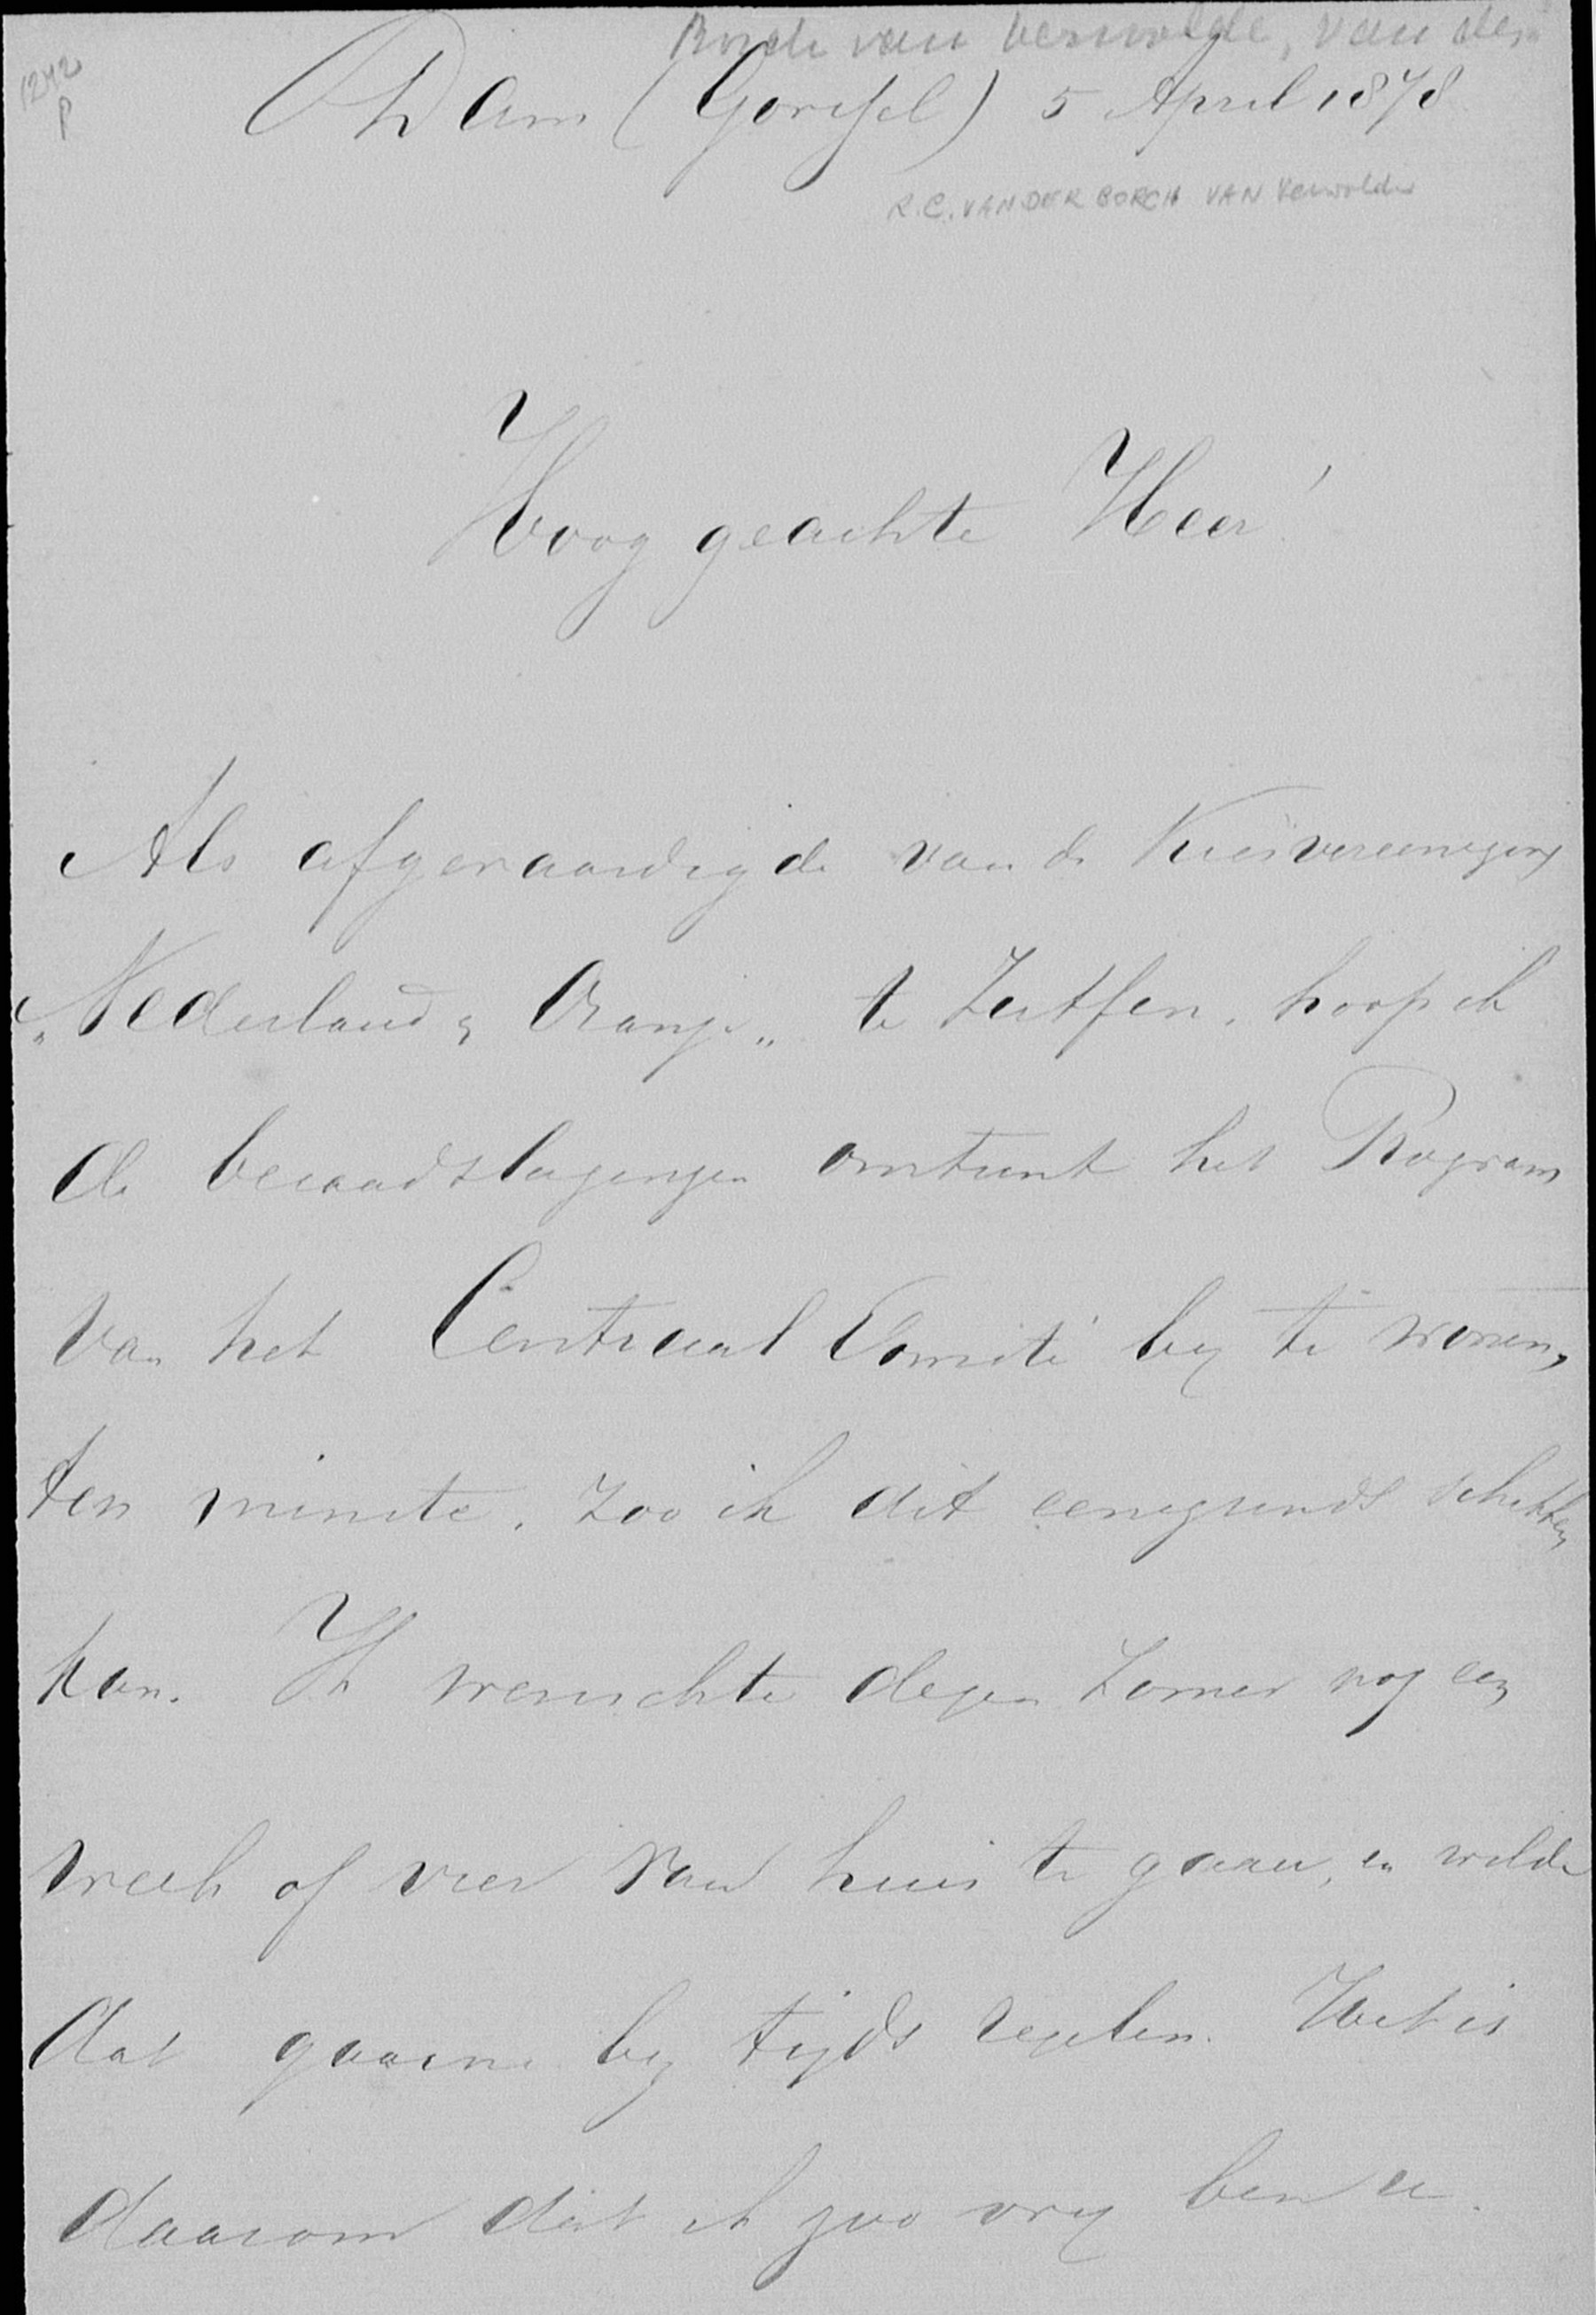 1242
P
Borch van Verwolde, van der
't Dam (Gorssel) 5 April 1878
R.C. VAN DER BORCH VAN Verwolde
Hoog geachte Heer!
Als afgevaardigde van de Kiesvereeniging
„Nederland & Oranje„ te Zutfen, hoop ik
de beraadslagingen omtrent het Program
van het Centraal Comité by te wonen,
ten minste, zoo ik dit eenigzinds schikken
kan. Ik wenschte dezen Zomer nog een
week of vier van huis te gaan, en wilde
dat gaarne by tyds regelen. Het is
daarom dat ik zoo vry ben u